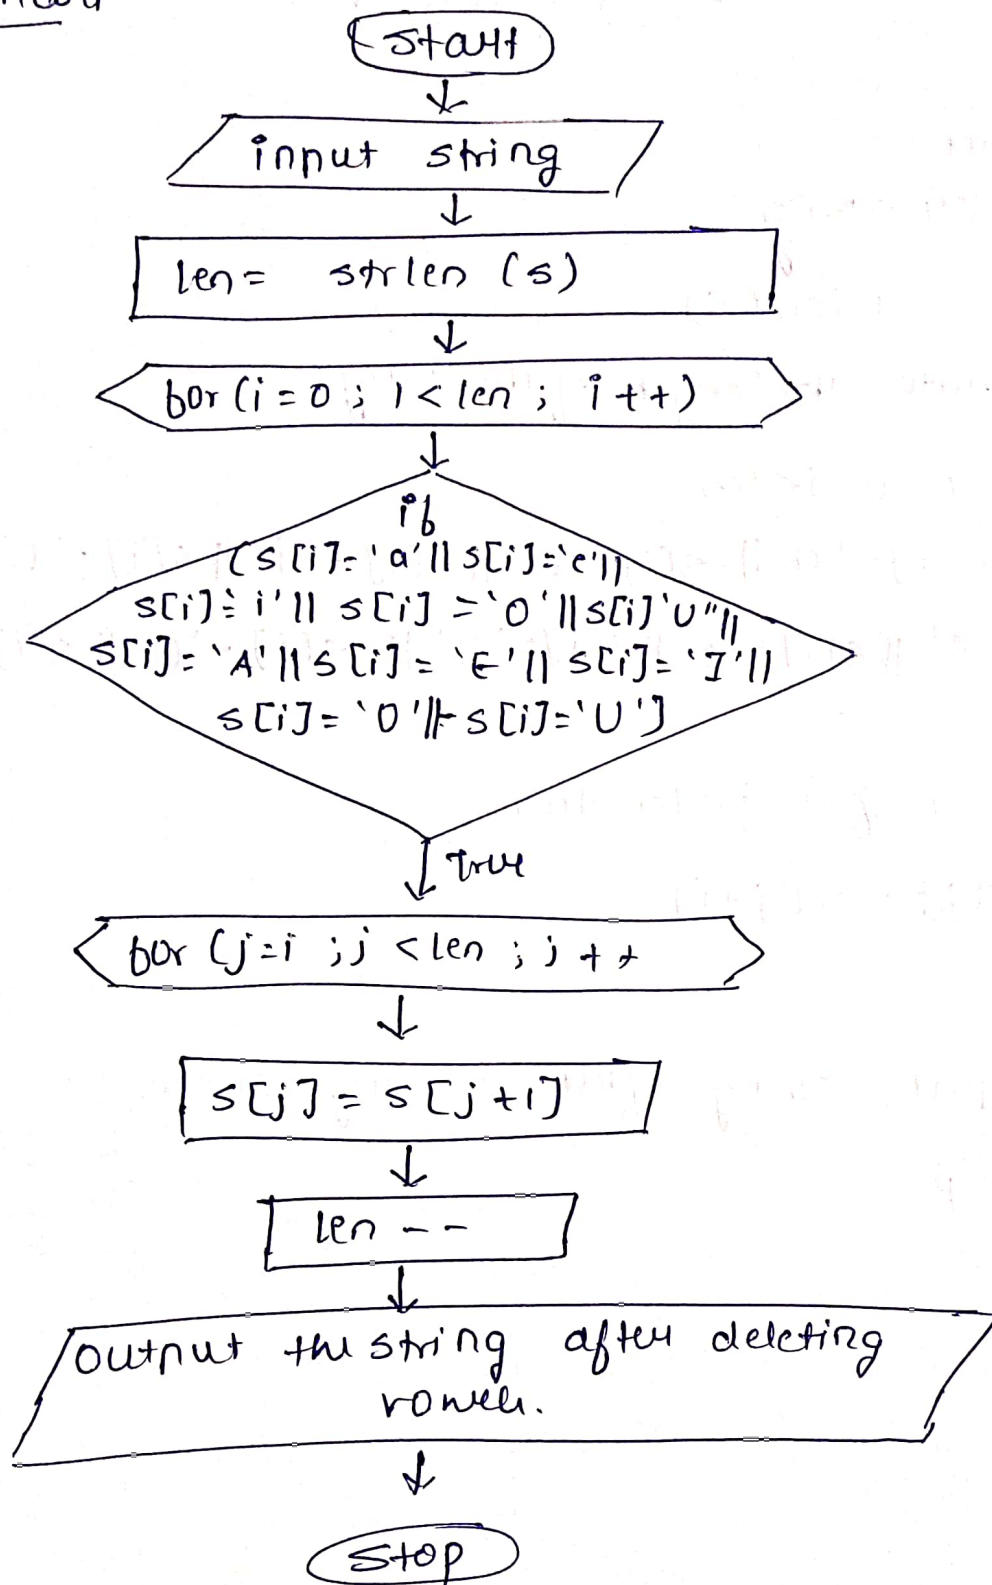 Start
input string
len = strlen (s)
for (i = 0 ; i < len ; i ++)
if
(s[i]= 'a'|| s[i]='e'||
s[i]= i'|| s[i] = 'o'|| s[i]'u"||
s[i]= 'A'|| s[i] = 'E'|| s[i]= 'I'||
s[i]= 'O'|| s[i]='U']
True
for (j=i ; j < len ; j ++
s[j] = s[j+1]
len --
output the string after deleting
vowels.
Stop